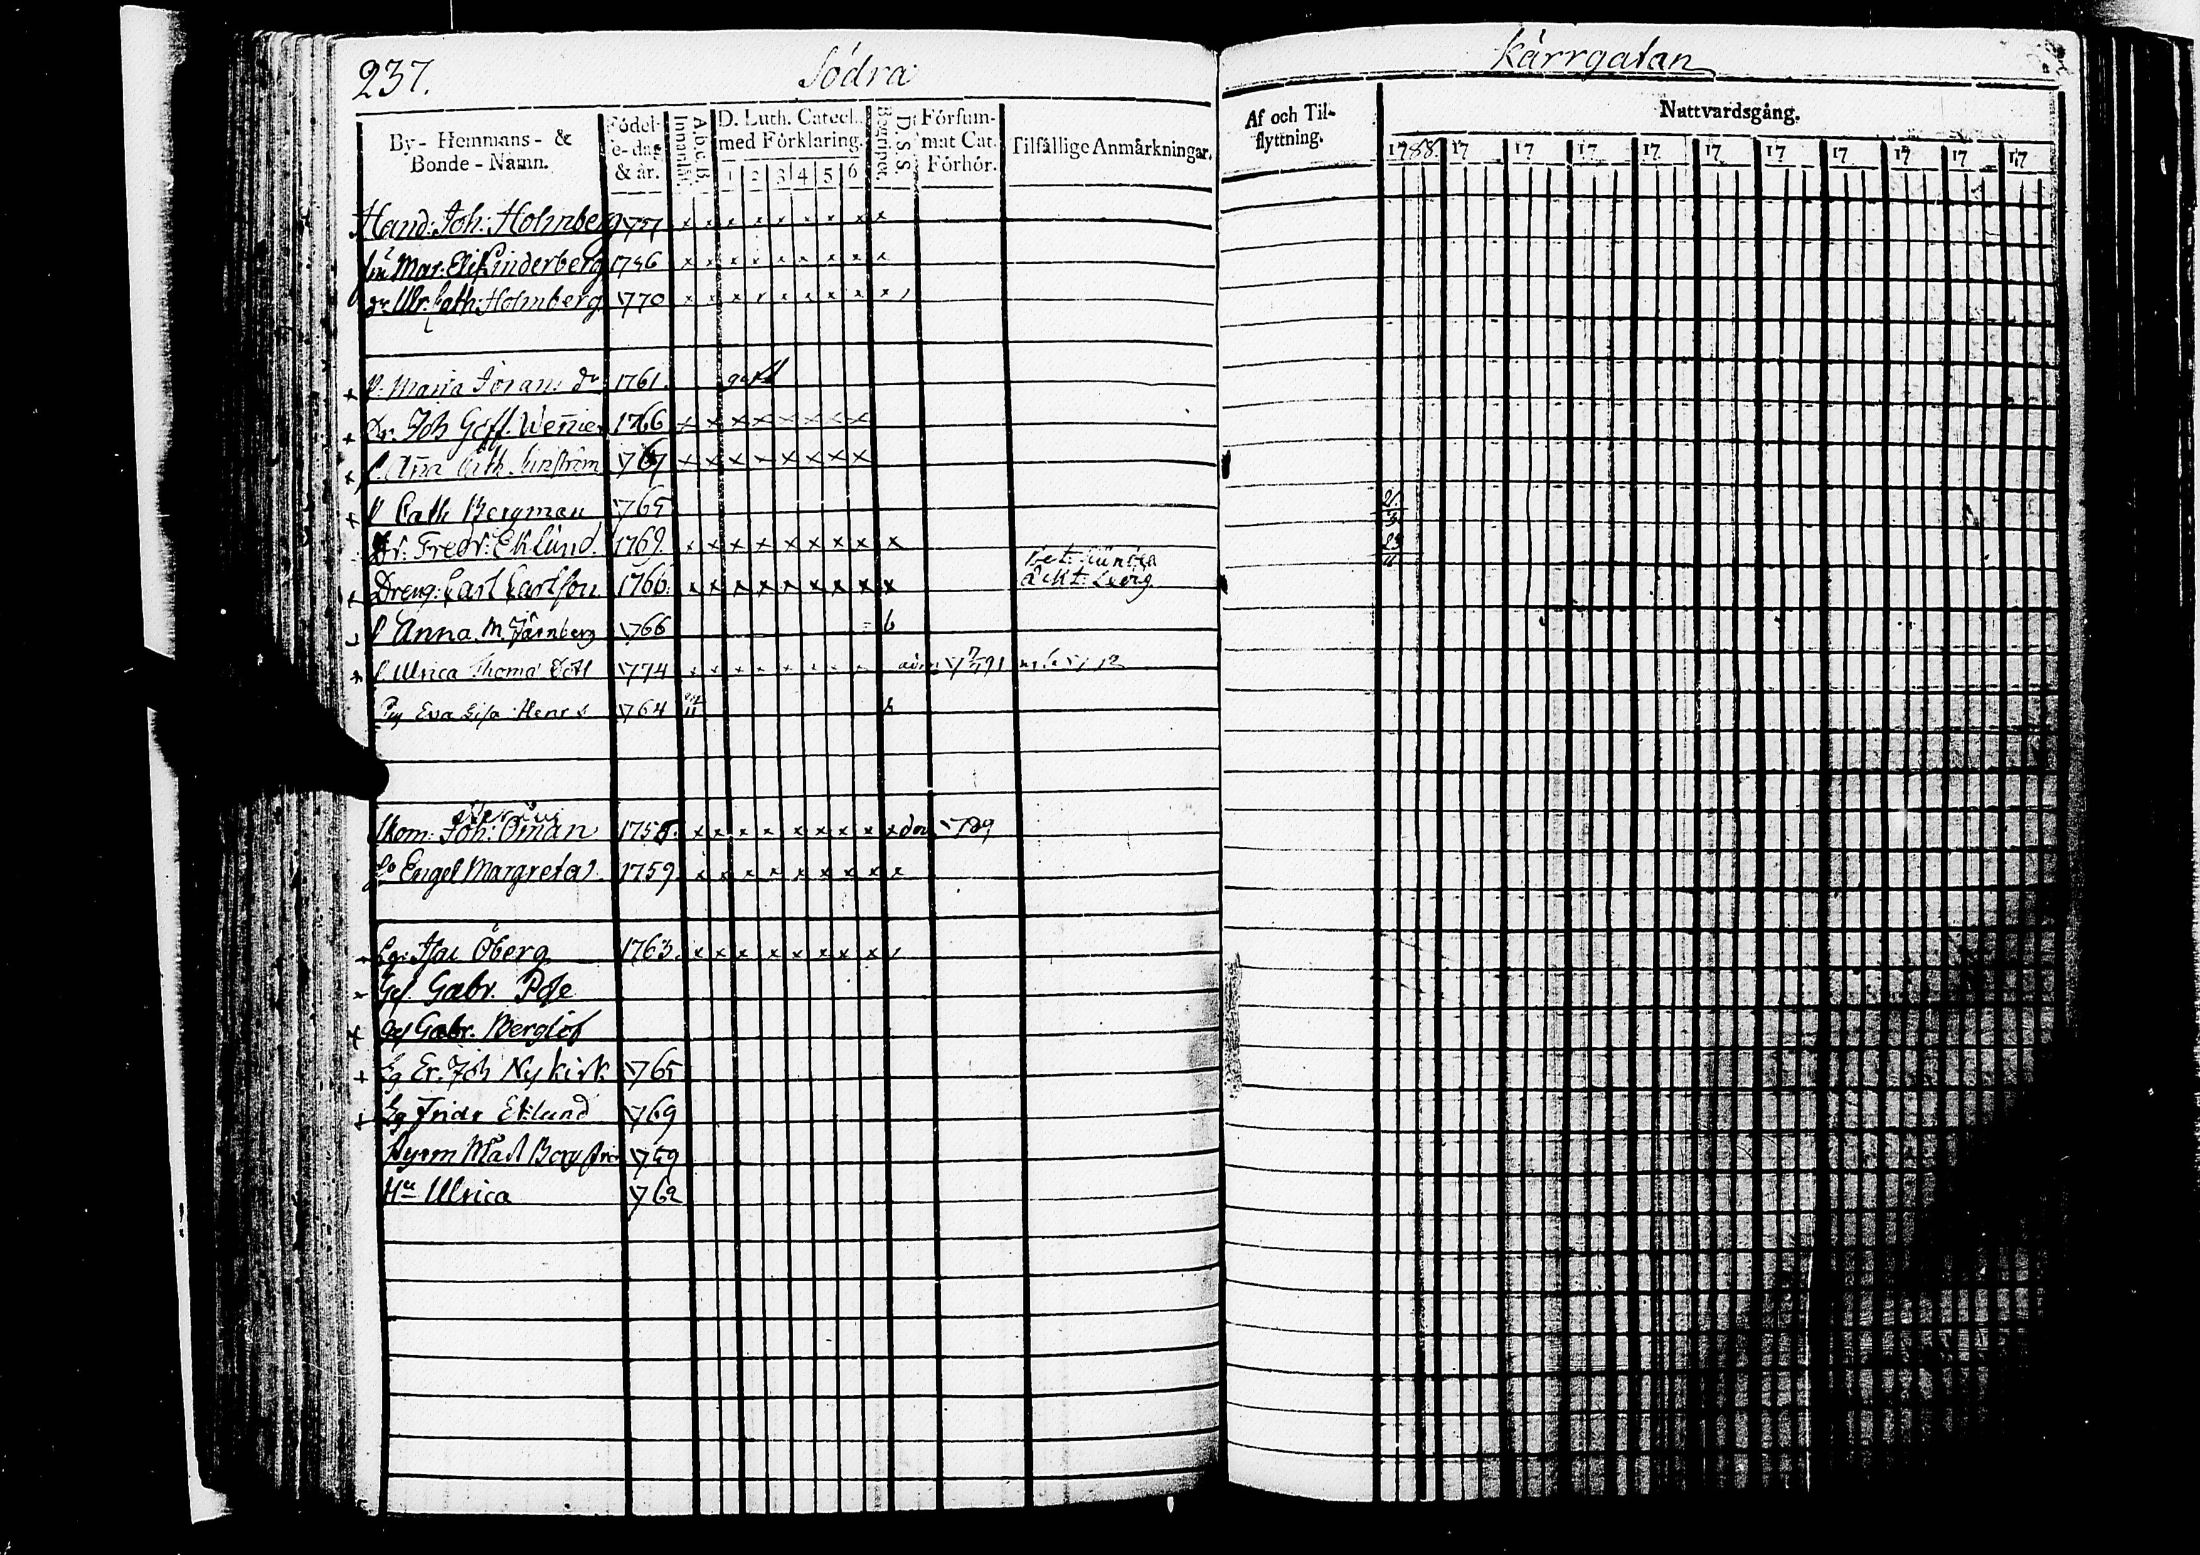 237.
Södra
By- Hemmans- &
Bonde-Namn.
Födel-
se-dag
& år.
Innanläs.
A.b.c.B.
D. Luth. Catech.
med Förklaring.
1 2 3 4 5 6
Begriper
D. S. S.
Försum-
mat Cat.
Förhör.
Tilfällige Anmärkningar.
Hand: Joh: Holmberg 1737 x x x x x x x x x
Mar. Elis Linderberg 1746 x x x x x x x x x
dr Ulr: Cath: Holmberg 1770 x x x x x x x x x
P. Maria Jörans dr 1761.
Dr. Joh Gofl. 1766 x x x x x x x x
P. Aña Cath 1767 x x x x x x x x
P Cath Bergman 1765
Dr: Fredr: Eklund. 1769. x x x x x x x x x
Dreng: Carl Carlson 1766. x x x x x x x x x
P Anna M Järnberg 1766 b
P Ulrica Thoma Dotl 1774 x x x x x x x x 1791
Eva Lisa Henr 1764 b
Joh: Öman x x x x x x x x x 1789
Engel Margreta 1759. x x x x x x x x x
Öberg 1763. x x x x x x x x
Gef. Gabr. Pose
Gef Gabr. Berglöf
Lg Er. Joh Nykirk 1765
Lg Fridr Eklund 1769
1759
Hu Ulrica 1762
Kärrgatan
Af och Til-
flyttning.
Nattvardsgång.
1788. 17 17 17 17 17 17 17 17 17 17